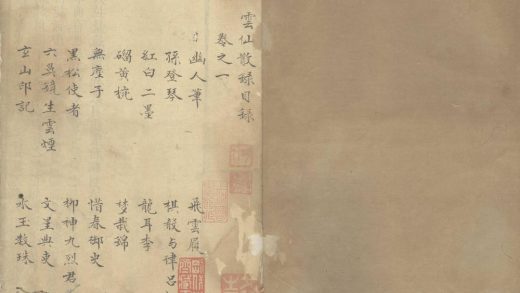 雲仙散録目録
卷之一
幽人筆 飛雲履
孫登琴 棋 与律呂
紅白二墨 龍耳李
黄椀 梦裁錦
無塵子 惜春御史
黒松使者 柳神九烈君
六 生雲煙 文星典吏
玄山印記 水玉数珠